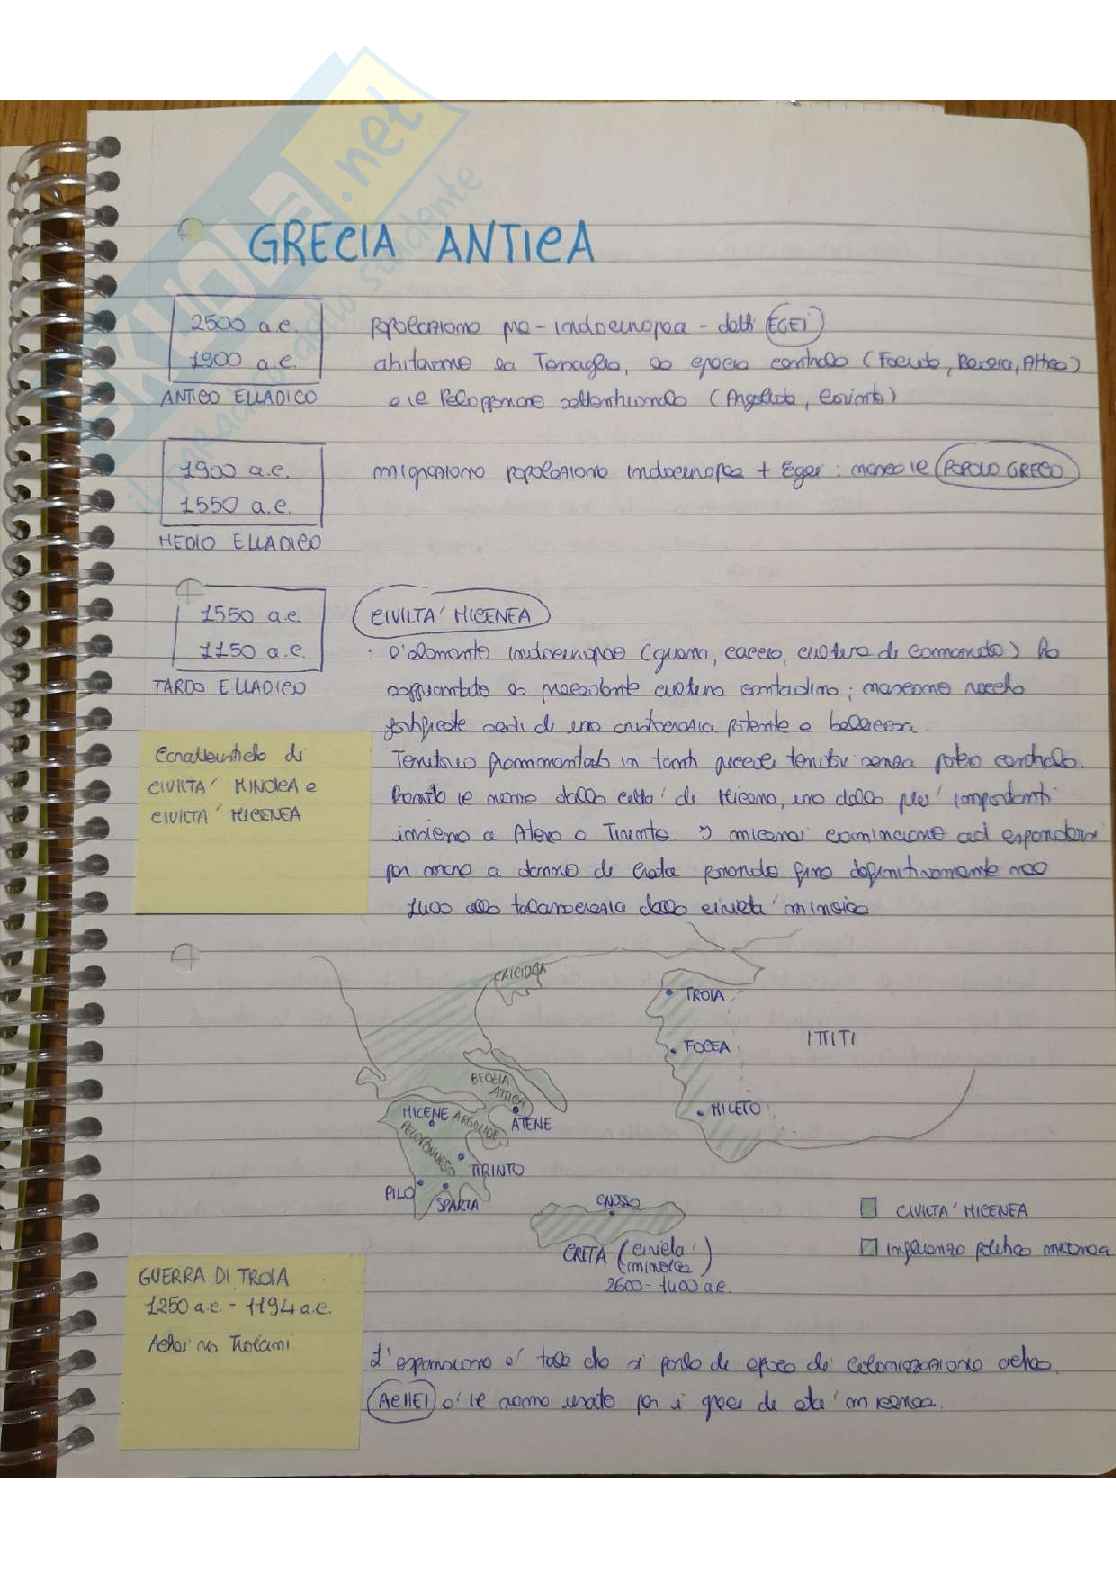 GRECIA ANTICA
2500 a.C.
1900 a.C.
ANTICO ELLADICO
popolazione pre-indoeuropea - detti EGEI
abitarono la Tessaglia, la grecia centrale (Focide, Beozia, Attica)
e il Peloponneso settentrionale (Argolide, Corinto)
1900 a.C.
1550 a.C.
MEDIO ELLADICO
migrazione popolazione indoeuropea + Egei: nasce il POPOLO GRECO
1550 a.C.
1150 a.C.
TARDO ELLADICO
CIVILTA' MICENEA
L'elemento indoeuropeo (guerra, caccia, cultura di comando) ha
soggiogato la preesistente cultura contadina; nascono rocche
fortificate sedi di una aristocrazia potente e bellicosa.
Territorio frammentato in tanti piccoli territori senza potere centrale.
Caratteristiche di
CIVILTA' MINOICA e
CIVILTA' MICENEA
il nome dalla citta' di Micene, una delle piu' importanti
insieme a Atene e Tirinto i micenei cominciarono ad espandersi
per mare a danno di Creta ponendo fine definitivamente nel
1400 alla talassocrazia della civilta' minoica
CALCIDICA
TROIA
FOCEA
ITTITI
MILETO
BEOZIA
ATTICA
MICENE
ARGOLIDE
ATENE
PELOPONNESO
TIRINTO
PILO
SPARTA
CNOSSO
CRETA (civiltà minoica)
2600-1400 a.C.
CIVILTA' MICENEA
influenza politica micenea
GUERRA DI TROIA
1250 a.C. - 1194 a.C.
Achei vs Troiani
L'espansione e' tale che si parla di epoca di colonizzazione achea.
ACHEI e' il nome usato per i greci di eta' micenea.
skuola.net
il paradiso dello studente